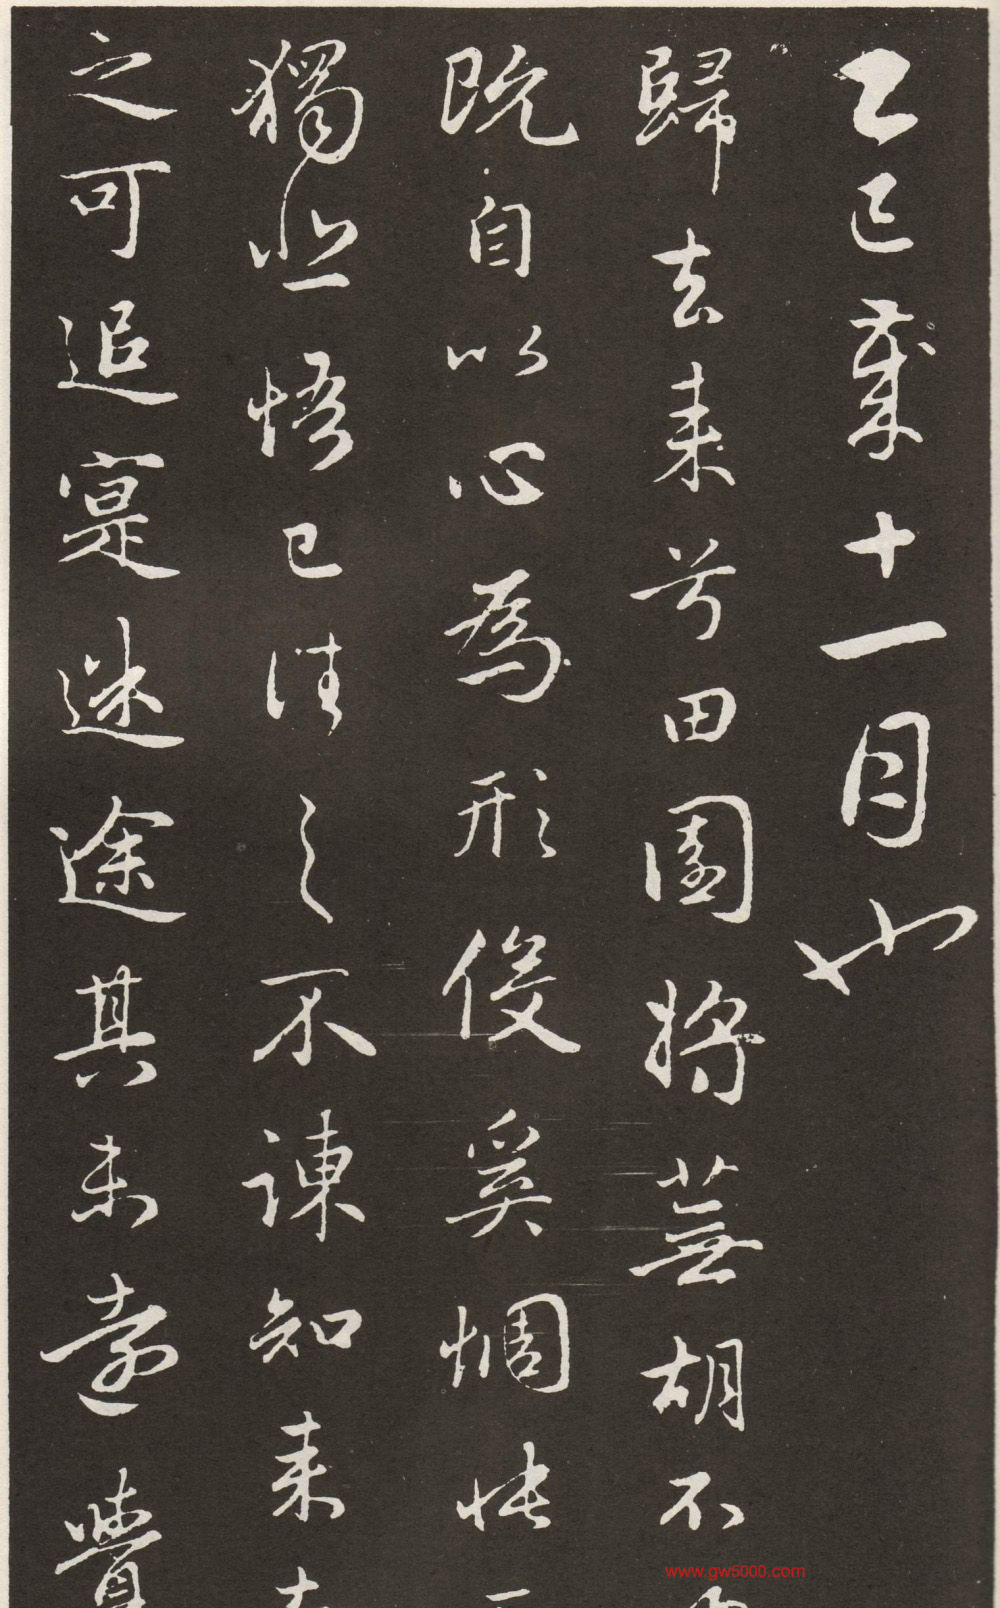 乙巳歲十一月也
歸去来兮田園將蕪胡不
既自以心為形役奚惆悵
獨悲悟已往之不諫知来
之可追寔迷途其未遠覺
www.gw5000.com